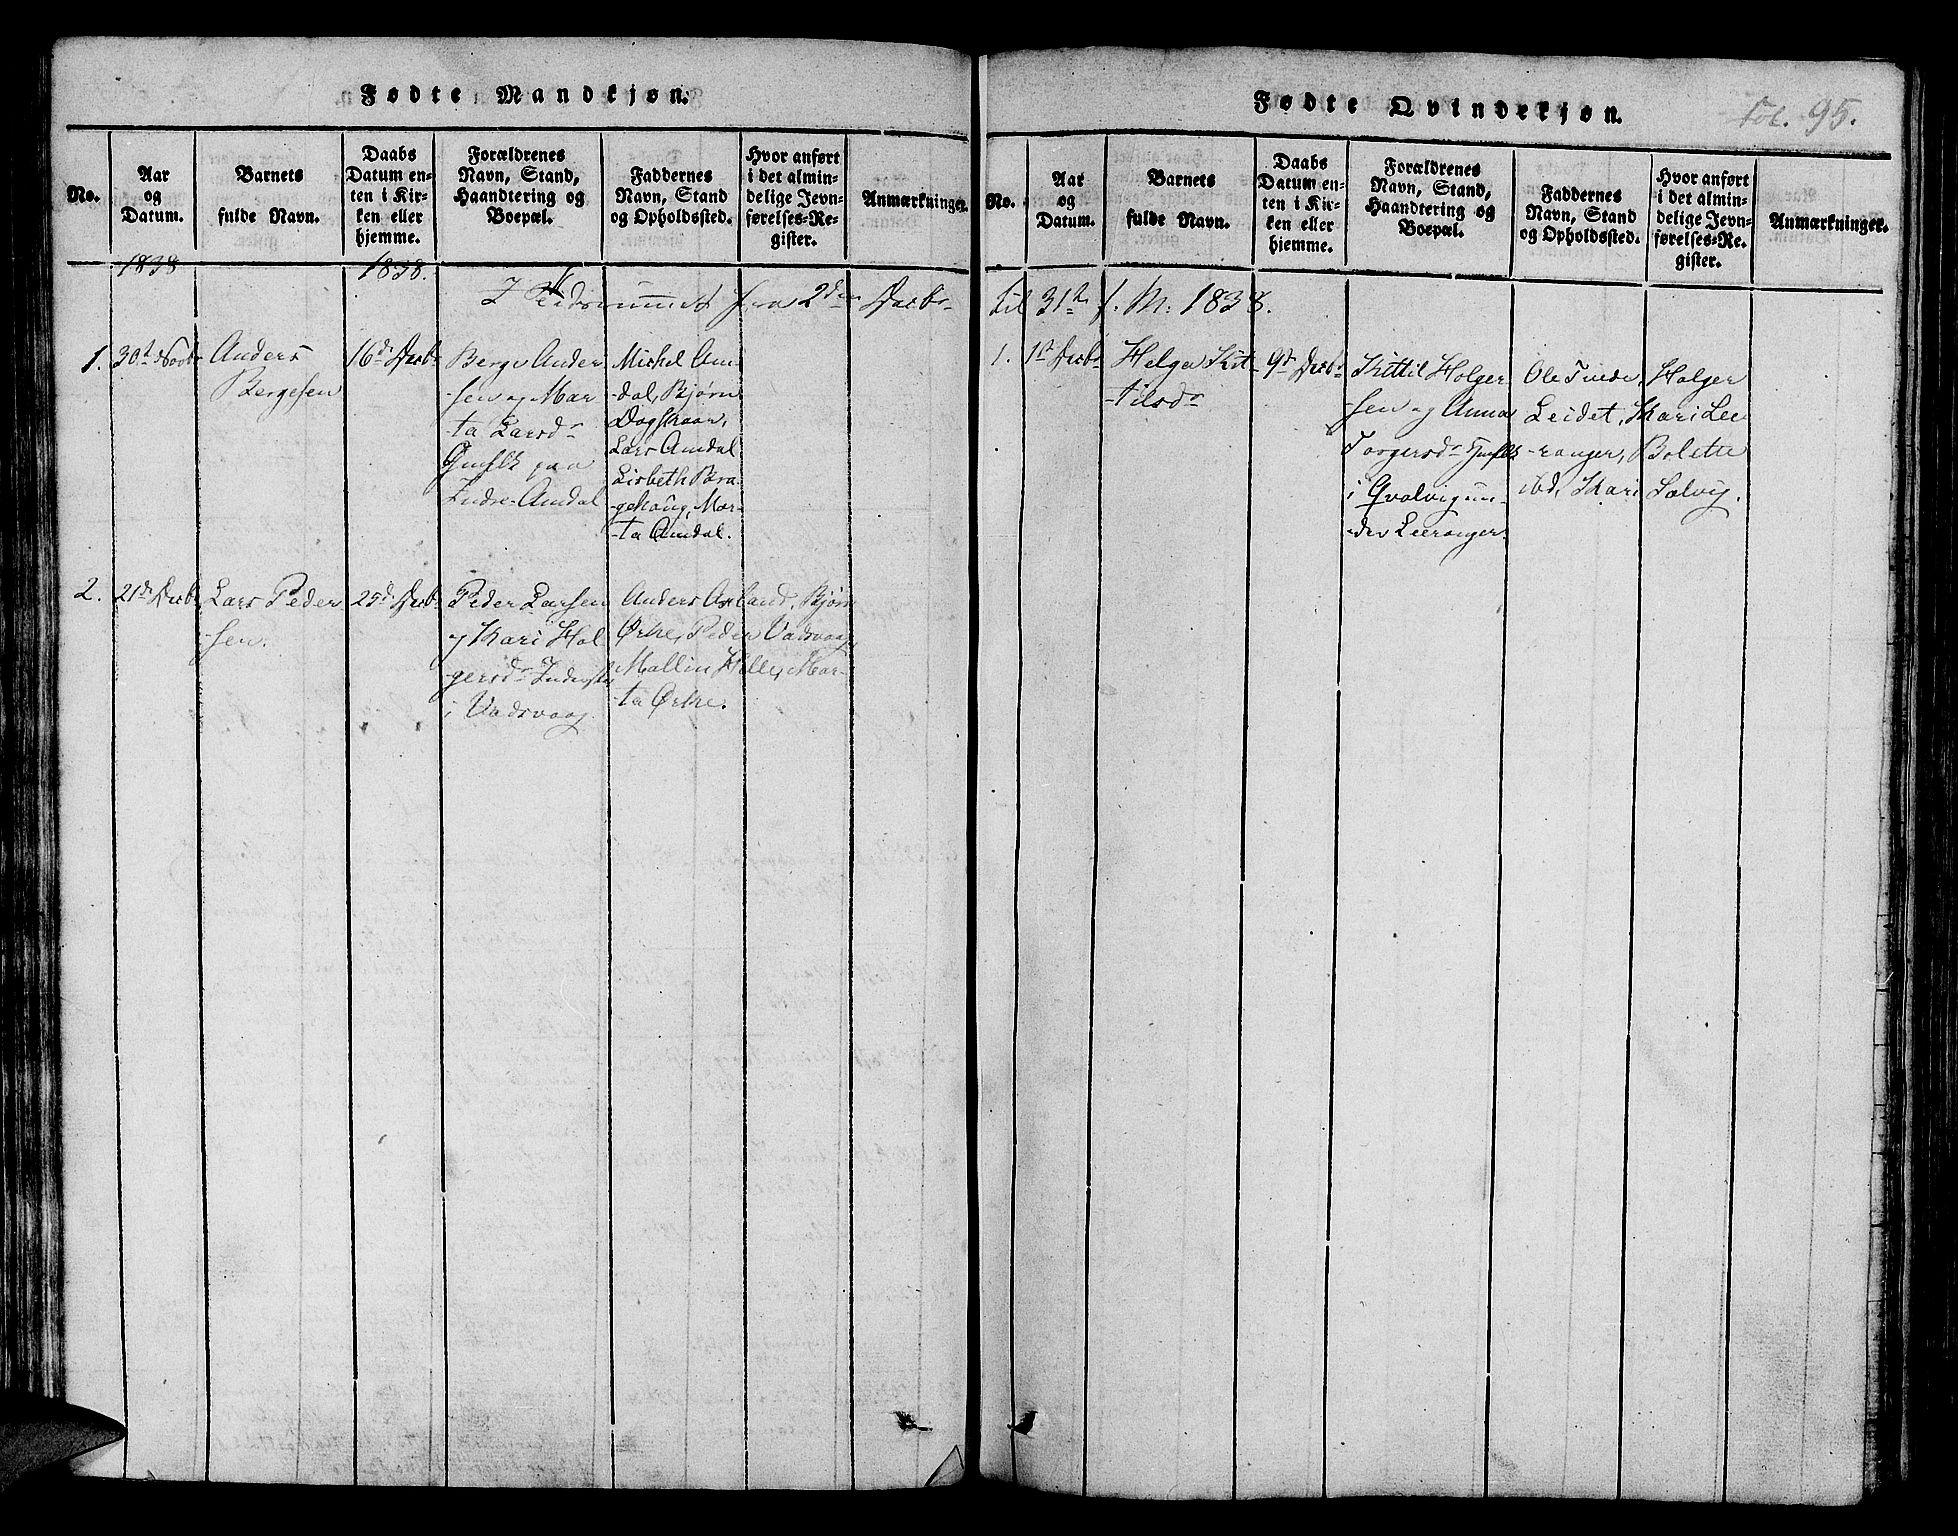 Fødte Mandkjøn.
No.
Aar
og
Datum.
Barnets
fulde Navn.
Daabs
Datum en-
ten i Kir-
ken eller
hjemme.
Forældrenes
Navn, Stand,
Haandtering og
Boepæl.
Faddernes
Navn, Stand
og Opholdssted.
Hvor anført
i det almin-
delige Jevn-
førelses-Re-
gister.
Anmærkninger.
1838
1838.
I Tidsrummet fra 2den Decbr
1.
30te Novbr
Anders
Bergesen
16de Decbr
Berge Ander
-sen og Mar
-ta Larsdr
paa
Indre-Amdal
Michel Am
-dal, Bjørn
Dagskaar,
Lars Amdal
Lisbeth Bra
-gehaug, Mar-
-ta Amdal.
2.
21de Decbr
Lars Peder
-sen.
25de Decbr
Peder Larsen
og Kari Hol
gersdr
i Vadsvaag.
Anders Arland, Bjørn
Ørke, Peder Vadsvaag,
Mallin Hille, Mar-
-ta Ørke.
Fødte Qvindekjøn.
fol. 95.
No.
Aar
og
Datum.
Barnets
fulde Navn.
Daabs
Datum en-
ten i Kir-
ken eller
hjemme.
Forældrenes
Navn, Stand,
Haandtering og
Boepæl.
Faddernes
Navn, Stand
og Opholdssted.
Hvor anført
i det almin-
delige Jevn-
førelses-Re-
gister.
Anmærkninger.
til 31te f. M. 1838.
1.
1ste Decbr
Helga Kit
-tilsdr
9de Decbr
Kittil Holger
-sen og Anna
Torgersdr
i Qvalvig un-
-der Leeranger.
Ole Holger
Leidet, Kari Lee
-ranger, Bolette
ibd, Kari Solvig.